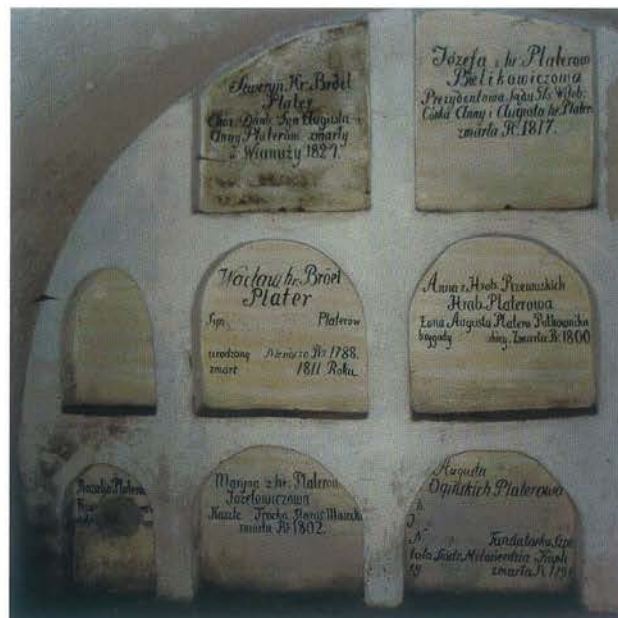 Seweryn Hr. Bröel
Plater
Syn Augusta i
Anny Platerów zmarły
w Wianuży 1827.
Józefa z hr. Platerow
Bielikowiczowa
Prezydentowa Sądu
Córka Anny i Augusta hr. Plater
zmarła R. 1817.
Wacław hr. Bröel
Plater
Syn Platerow
urodzony 1788.
zmarł 1811 Roku
Anna z Hrab. Rzewuskich
Hrab. Platerowa
Żona Augusta Platera Pułkownika
brygady Zmarła R. 1800
Rozalja Platero
Maryna z hr. Platerow
Józefowiczowa
Kaszt. Trocka Staroś.
zmarła R. 1802.
Augusta
Ogińskich Platerowa
Fundatorka Szpi
tala Sióstr Miłosierdzia
zmarła R. 179